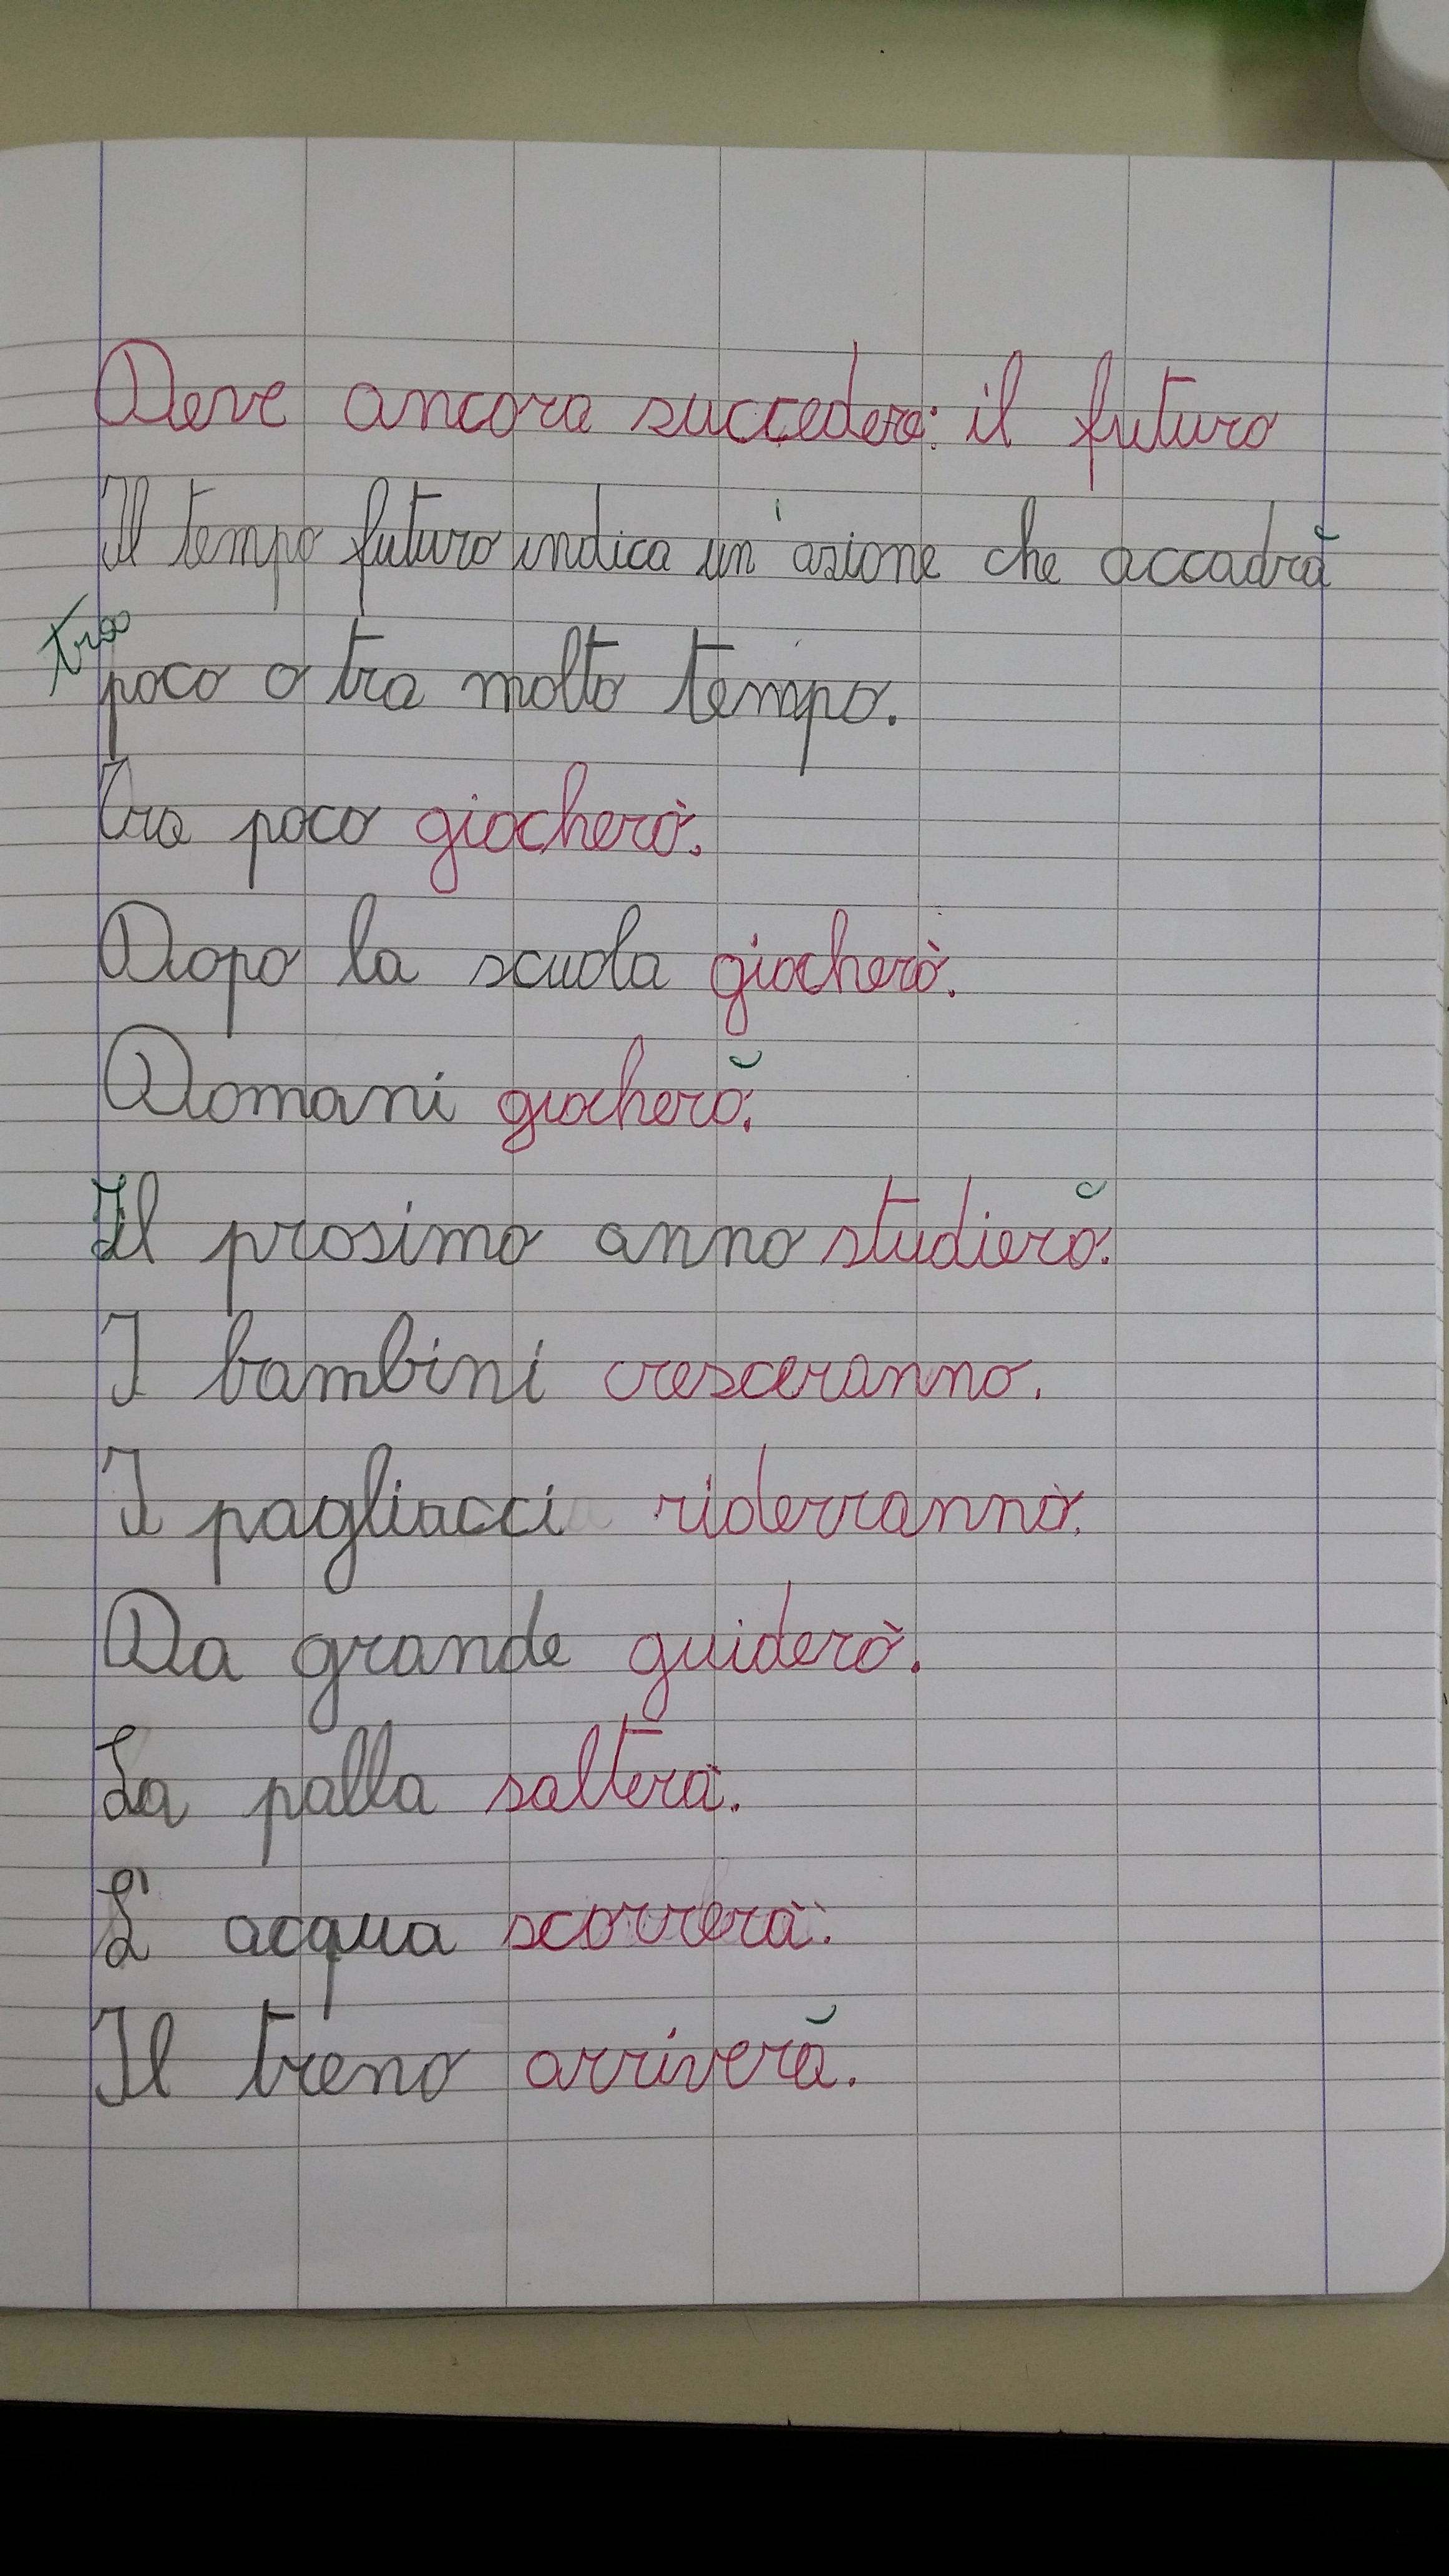 Deve ancora succedere: il futuro
Il tempo futuro indica un'azione che accadrà
tra poco o tra molto tempo.
Tra poco giocherò.
Dopo la scuola giocherò.
Domani giocherò.
Il prosimo anno studierò.
I bambini cresceranno.
I pagliacci riderrannò.
Da grande guiderò.
La palla salterà.
L' acqua scorrerà.
Il treno arriverà.